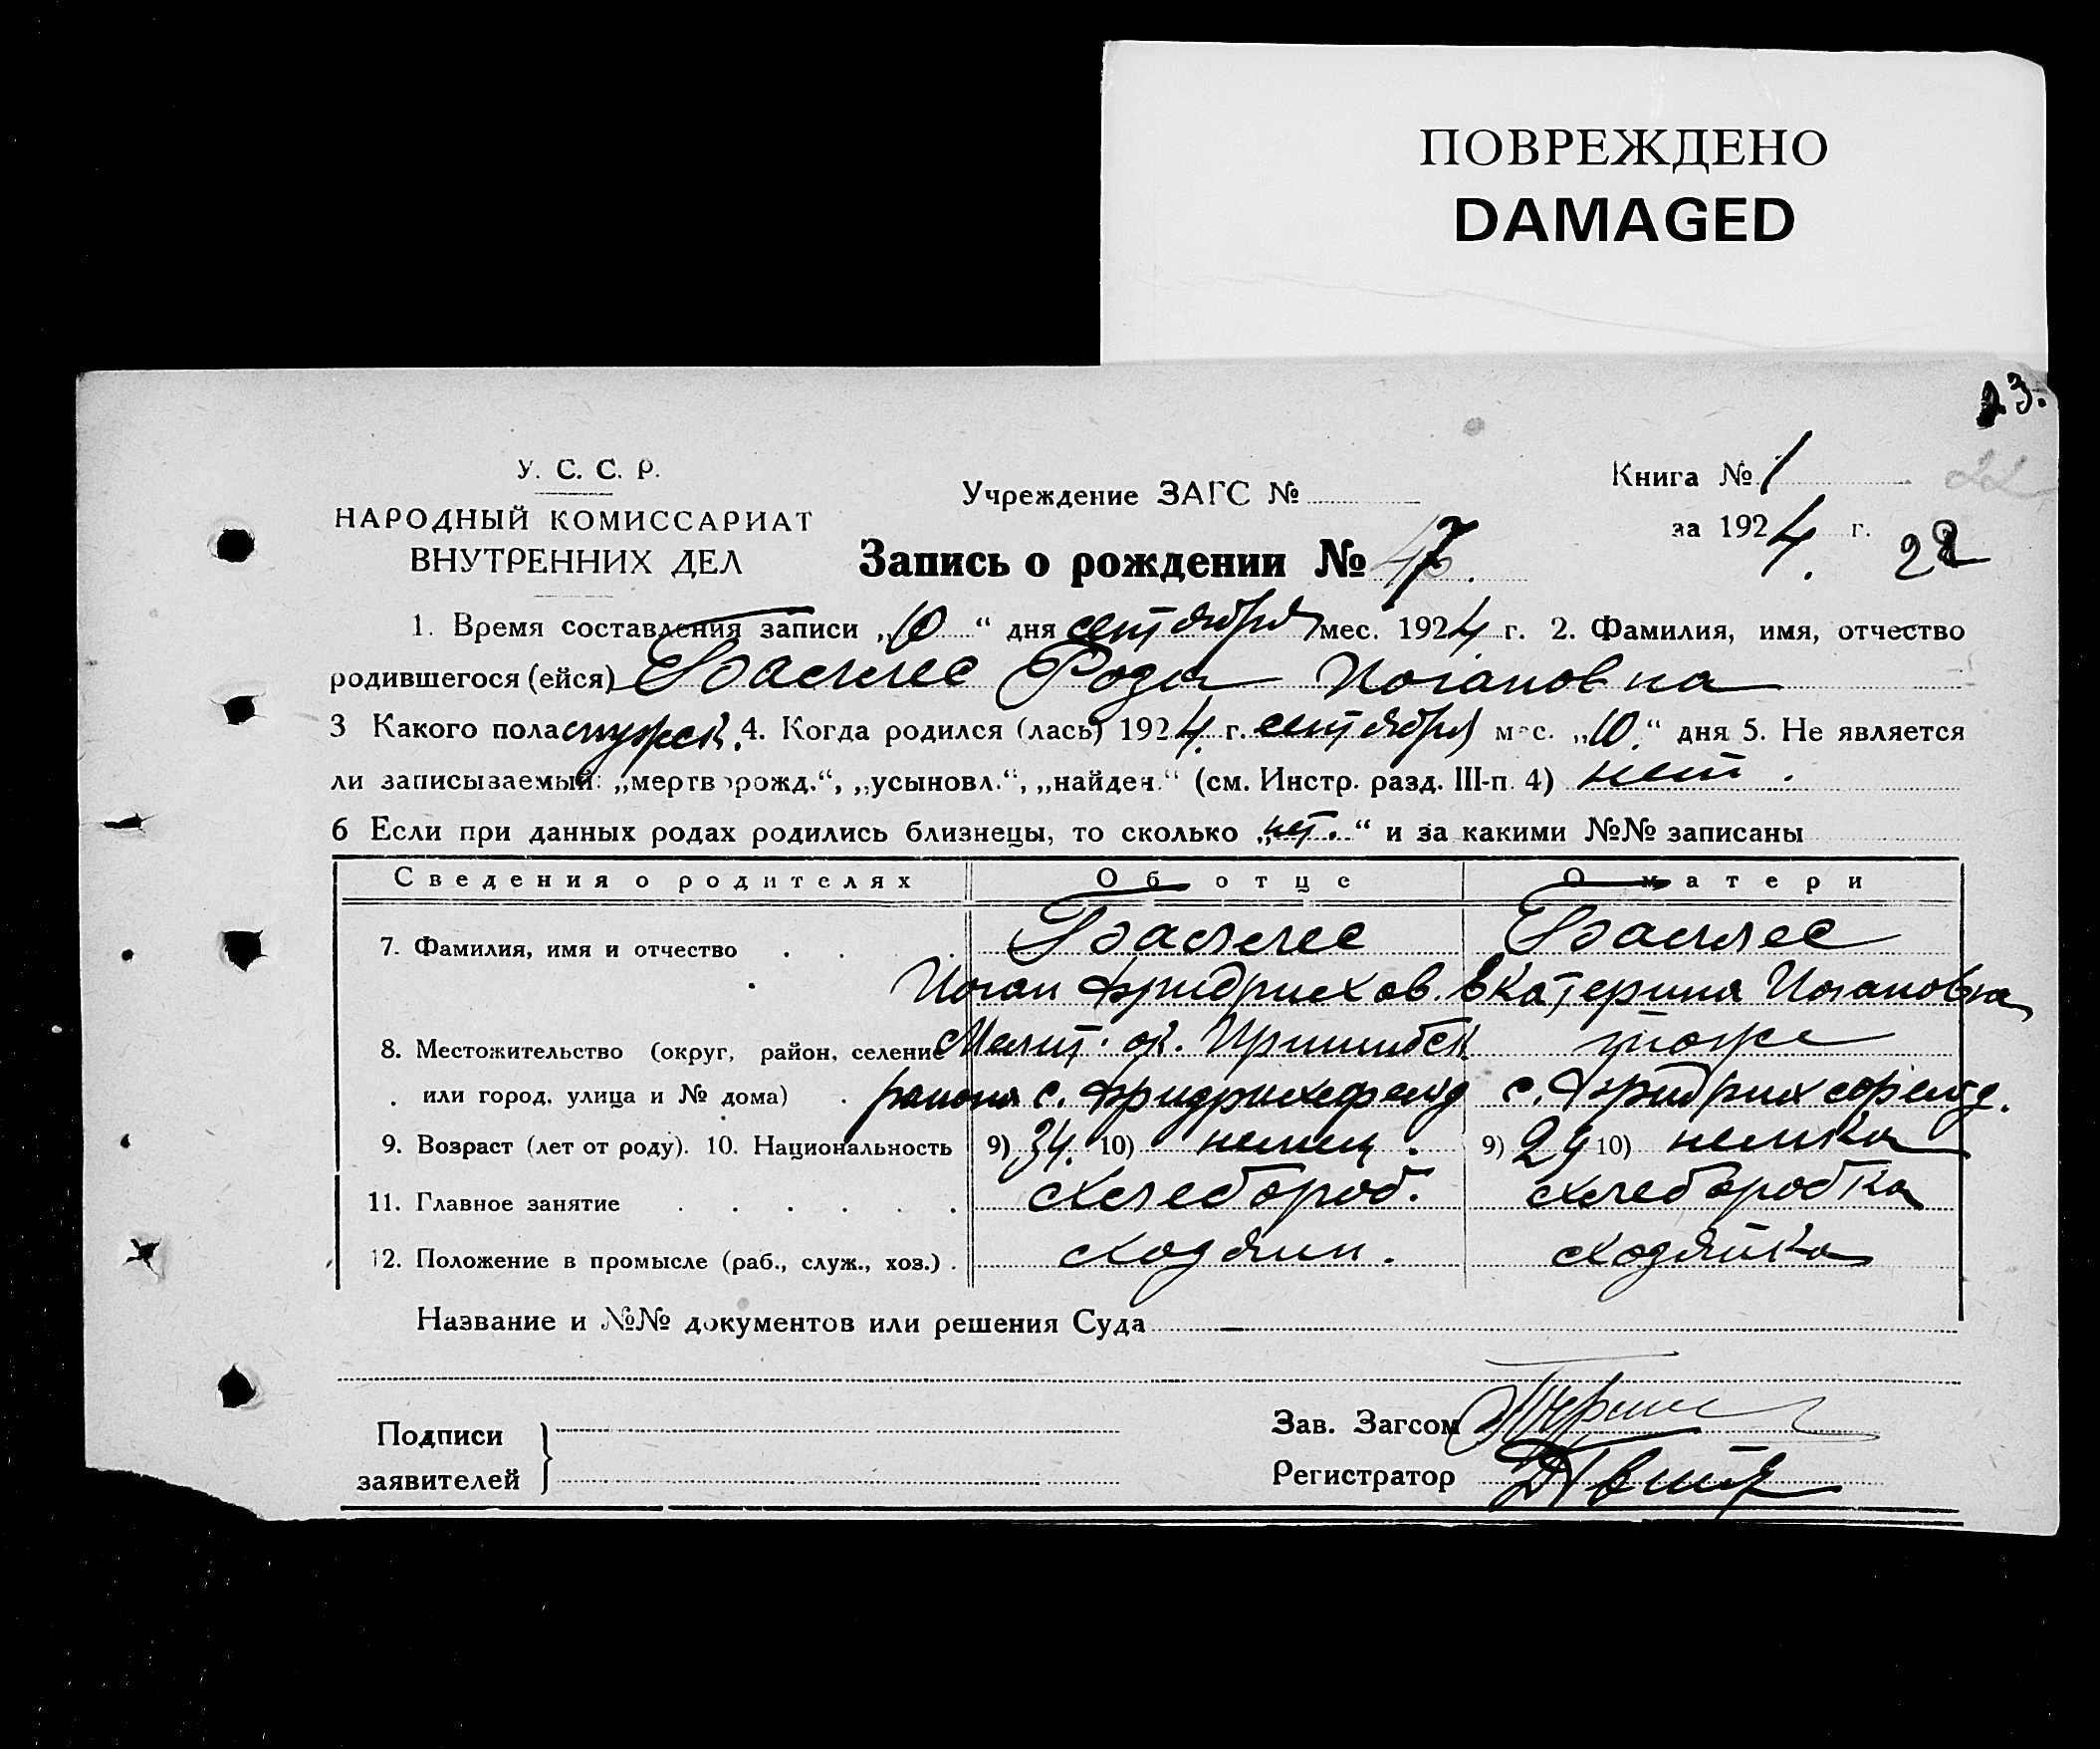 ПОВРЕЖДЕНО
DAMAGED
23.
У. С. С. Р.
НАРОДНЫЙ КОМИССАРИАТ
ВНУТРЕННИХ ДЕЛ
Учреждение ЗАГС №
Книга № 1
за 1924 г.
22
Запись о рождении № 47.
1. Время составления записи „10“ дня сентября мес. 1924 г. 2. Фамилия, имя, отчество
родившегося (ейся) Роза Иогановна
3 Какого пола 4. Когда родился (лась) 1924 г. сентября мес. „10.“ дня 5. Не является
ли записываемый: „мертворожд.“, „усыновл.“, „найден.“ (см. Инстр. разд. III-п. 4) нет.
6 Если при данных родах родились близнецы, то сколько „нет.“ и за какими №№ записаны
Сведения о родителях Об отце О матери
7. Фамилия, имя и отчество
Иоган Фридрихов. Екатерина Иогановна
8. Местожительство (округ, район, селение Мелит. ок. Пришибск. тоже
или город, улица и № дома) района с. Фридрихсфельд с. Фридрихсфельд.
9. Возраст (лет от роду). 10. Национальность 9) 34. 10) немец. 9) 29 10) немка
11. Главное занятие хлебороб. хлеборобка
12. Положение в промысле (раб., служ., хоз.) хозяин. хозяйка
Название и №№ документов или решения Суда —
Подписи
заявителей
Зав. Загсом
Регистратор